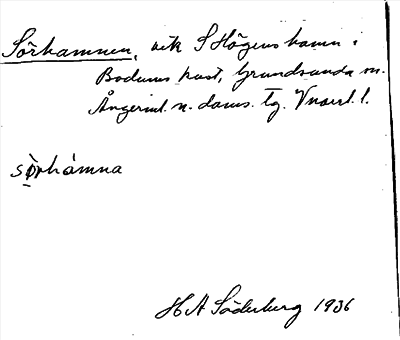 Sörhamnen, vik S Högens hamn i
Bodums kust, Grundsunda sn.
Ångerml. n. doms. Tg. Vnorrl. l.
sörhámna
H A Söderberg 1936